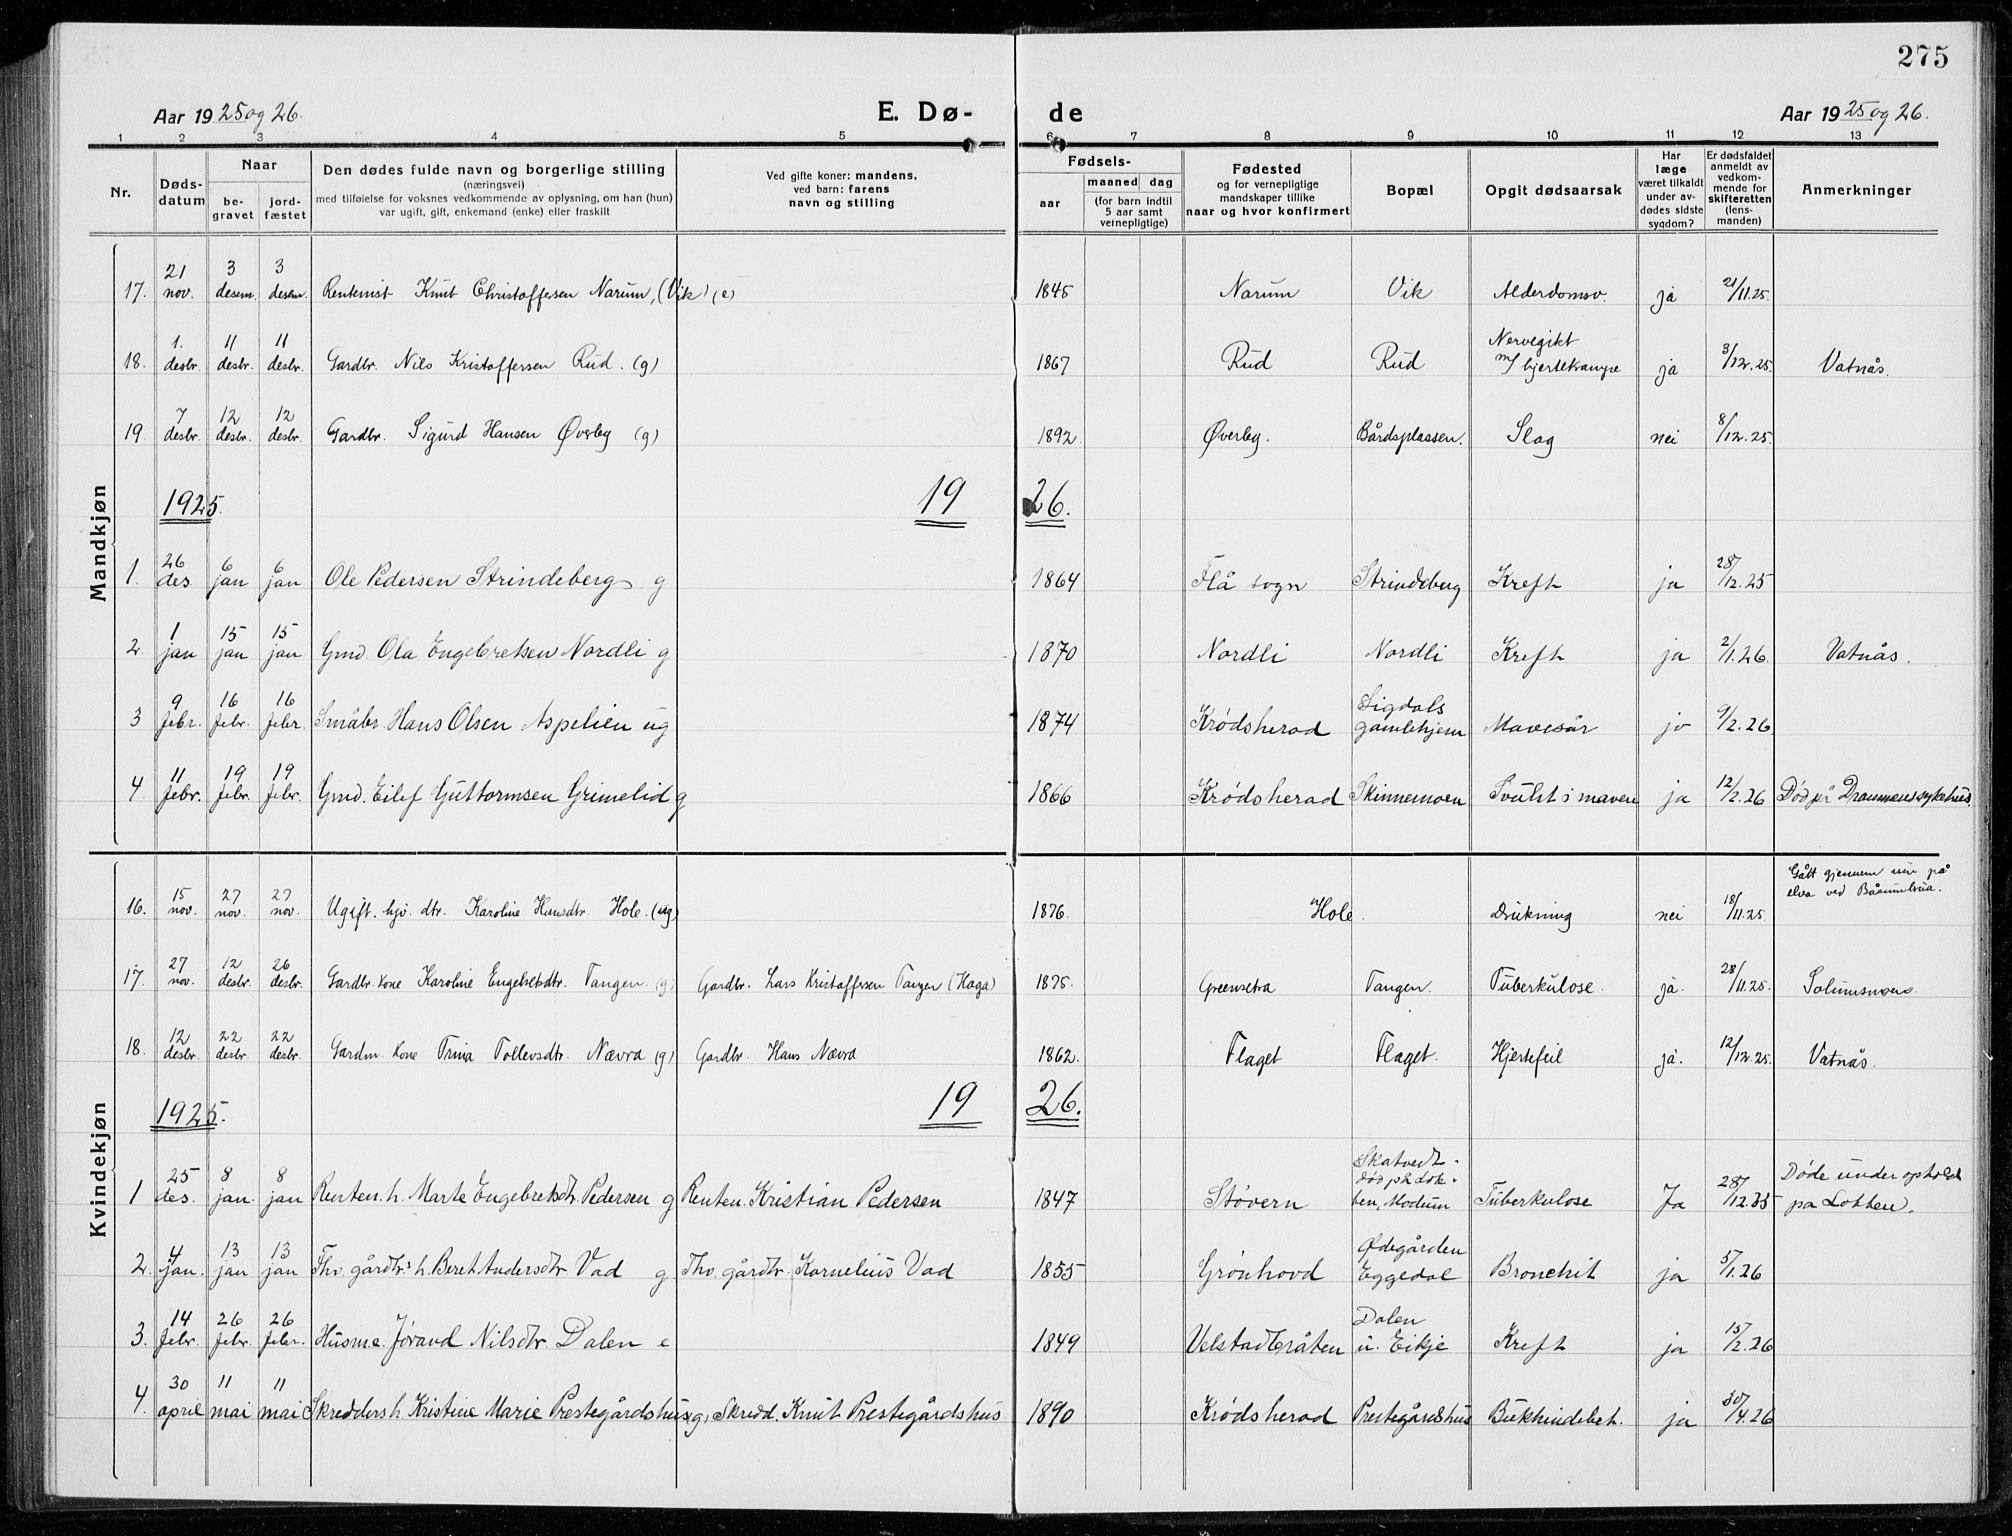 275
Aar 1925 og 26.
E. Dø-
de
Aar 1925 og 26.
1 2 3 4 5 6 7 8 9 10 11 12 13
Nr.
Døds-
datum
Naar
be-
gravet
jord-
fæstet
Den dødes fulde navn og borgerlige stilling
(næringsvei)
med tilføielse for voksnes vedkommende av oplysning, om han (hun)
var ugift, gift, enkemand (enke) eller fraskilt
Ved gifte koner: mandens,
ved barn: farens
navn og stilling
Fødsels-
aar
maaned dag
(for barn indtil
5 aar samt
vernepligtige)
Fødested
og for vernepligtige
mandskaper tillike
naar og hvor konfirmert
Bopæl
Opgit dødsaarsak
Har
læge
været tilkaldt
under av-
dødes sidste
sygdom?
Er dødsfaldet
anmeldt av
vedkom-
mende for
skifteretten
(lens-
manden)
Anmerkninger
Mandkjøn
17. 21 nov. 3 desem. 3 desem. Rentenist Knut Christoffersen Narum, (Vik) (e) 1845 Narum Vik Alderdomsv. ja 21/11.25.
18. 1. desbr. 11 desbr. 11 desbr. Gardbr. Nils Kristoffersen Rud. (g) 1867 Rud Rud Nervegikt m/ hjertekrampe ja 3/12.25. Vatnås.
19. 7 desbr. 12 desbr. 12 desbr. Gardbr. Sigurd Hansen Øverby (g) 1892. Øverby. Bårdsplassen. Slag nei 8/12.25.
1925. 19 26.
1. 26 des. 6 jan 6 jan Ole Pedersen Strindeberg g 1864 Flå sogn Strindeberg Kreft ja 28/12.25
2. 1 jan 15 jan 15 jan Gmd. Ola Engebretsen Nordli g 1870 Nordli Nordli Kreft ja 2/1.26. Vatnås.
3 9 febr. 16 febr. 16 febr. Småbr Hans Olsen Aspelien ug 1874 Krødsherad Sigdals gamlehjem Mavesår ja 9/2.26
4 11 febr. 19 febr. 19 febr. Gmd. Eilef Guttormsen Grimelid g 1866 Krødsherad Skinnemoen Svulst i maven ja 12/2.26 Død på Drammens sykehus.
Kvindekjøn
16. 15 nov. 27 nov. 27 nov. Ugift. hjv. dtr. Karoline Hansdtr. Hole. (ug) 1876. Hole. Drukning nei 18/11.25. Gått gjennem isen på elva ved
17. 27 nov. 12 desbr. 26 desbr. Gardbr. kone Karoline Engebretsdtr. Tangen. (g) Gardbr. Lars Kristoffersen Tangen (Haga) 1875. Greensetra Tangen. Tuberkulose. ja. 28/11.25. Solumsmoen.
18. 12 desbr. 22 desbr. 22 desbr. Gardm. kone Trina Tollevsdtr. Nævra (g) Gardbr. Hans Nævra 1862. Flaget Flaget. Hjertefeil ja. 12/12.25. Vatnås.
1925. 19 26.
1 25 des. 8 jan. 8 jan Renten. h. Marte Engebretsdtr. Pedersen g Renten. Kristian Pedersen 1847 Støvern Skatvedt - død på Lok- ken, Modum Tuberkulose Ja 28/12.25 Døde under ophold pa Lokken.
2. 4 jan. 13 jan 13 jan Fhv. gårdbr.s h. Beret Andersdtr Vad g Fhv. gårdbr. Kornelius Vad 1855 Grønhovd Ødegården Eggedal Bronchit ja 5/1.26
3. 14 febr. 26 febr. 26 febr. Husm.e. Jørand Nilsdtr. Dalen e 1849 Velstadbråten Dalen u. Eikje Kreft ja 15/2.26
4. 30 april 11 mai 11 mai Skredders h. Kristine Marie Prestegårdshus (g) Skredd. Knut Prestegårdshus 1890 Krødsherad Prestegårdshus Bukhindebet. ja 30/4.26